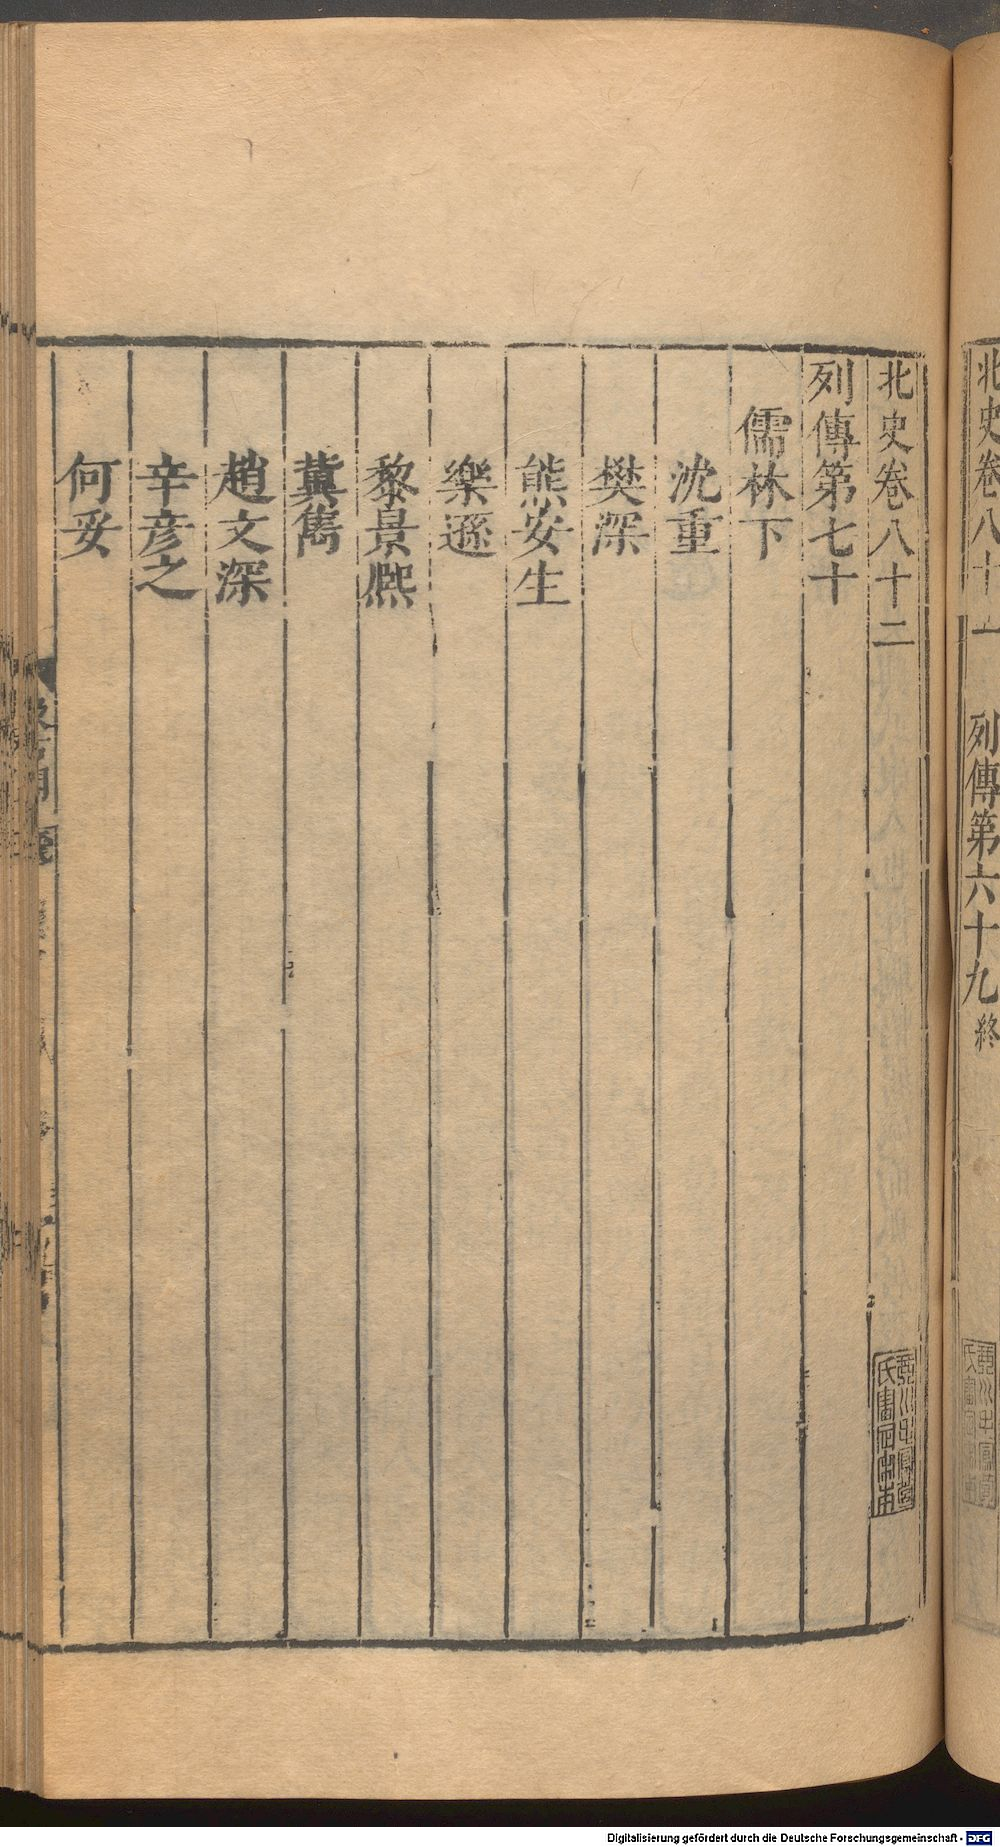 北史卷八十一 列傳第六十九終
北史卷八十二
列傳第七十
儒林下
沈重
樊深
熊安生
樂遜
黎景熈
冀儁
趙文深
辛彥之
何妥
Digitalisierung gefördert durch die Deutsche Forschungsgemeinschaft - DFG